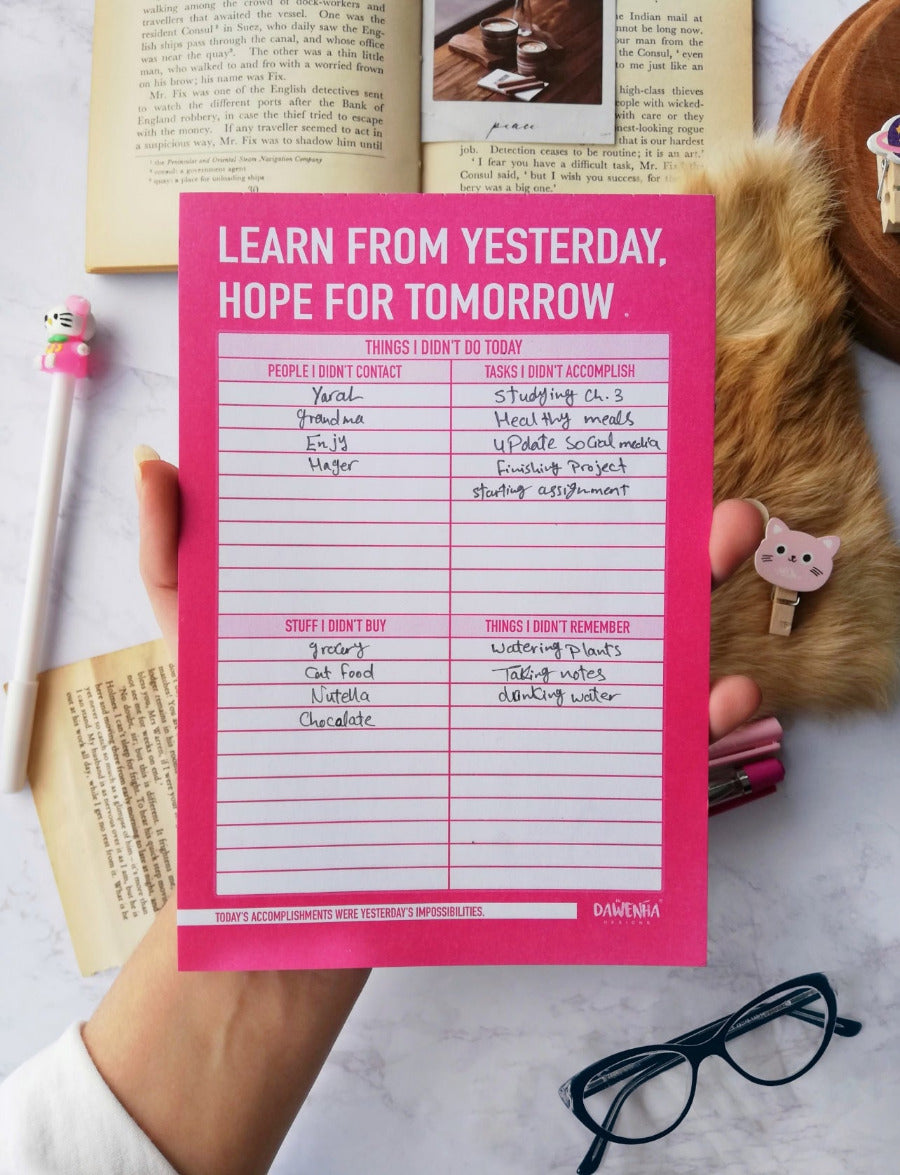 walking among the crowd of dock-workers and
travellers that awaited the vessel. One was the
resident Consul² in Suez, who daily saw the Eng-
lish ships pass through the canal, and whose office
was near the quay³. The other was a thin little
man, who walked to and fro with a worried frown
on his brow; his name was Fix.
Mr. Fix was one of the English detectives sent
to watch the different ports after the Bank of
England robbery, in case the thief tried to escape
with the money. If any traveller seemed to act in
a suspicious way, Mr. Fix was to shadow him until
¹ the Peninsular and Oriental Steam Navigation Company
² consul: a government agent
³ quay: a place for unloading ships
30
peace
e Indian mail at
nnot be long now.
our man from the
the Consul, ‘ even
to me just like an
high-class thieves
eople with wicked-
with care or they
nest-looking rogue
that is our hardest
job. Detection ceases to be routine; it is an art.’
‘ I fear you have a difficult task, Mr. Fix
Consul said, ‘ but I wish you success, for
bery was a big one.’
LEARN FROM YESTERDAY,
HOPE FOR TOMORROW.
THINGS I DIDN'T DO TODAY
PEOPLE I DIDN'T CONTACT
Yarah
grandma
Enjy
Hager
TASKS I DIDN'T ACCOMPLISH
Studying Ch. 3
Healthy meals
UPdate Social media
Finishing Project
starting assignment
STUFF I DIDN'T BUY
grocery
Cat food
Nutella
Chocolate
THINGS I DIDN'T REMEMBER
Watering Plants
Taking notes
drinking water
TODAY'S ACCOMPLISHMENTS WERE YESTERDAY'S IMPOSSIBILITIES.
DAWENHA
DESIGNS